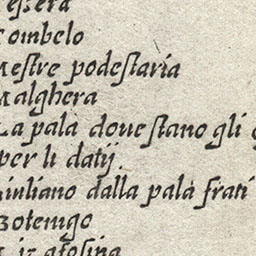 ombelo
estre podestaria
alghera
La pala doue stano gli
per li datij.
iuliano dalla pala frati
Botenigo